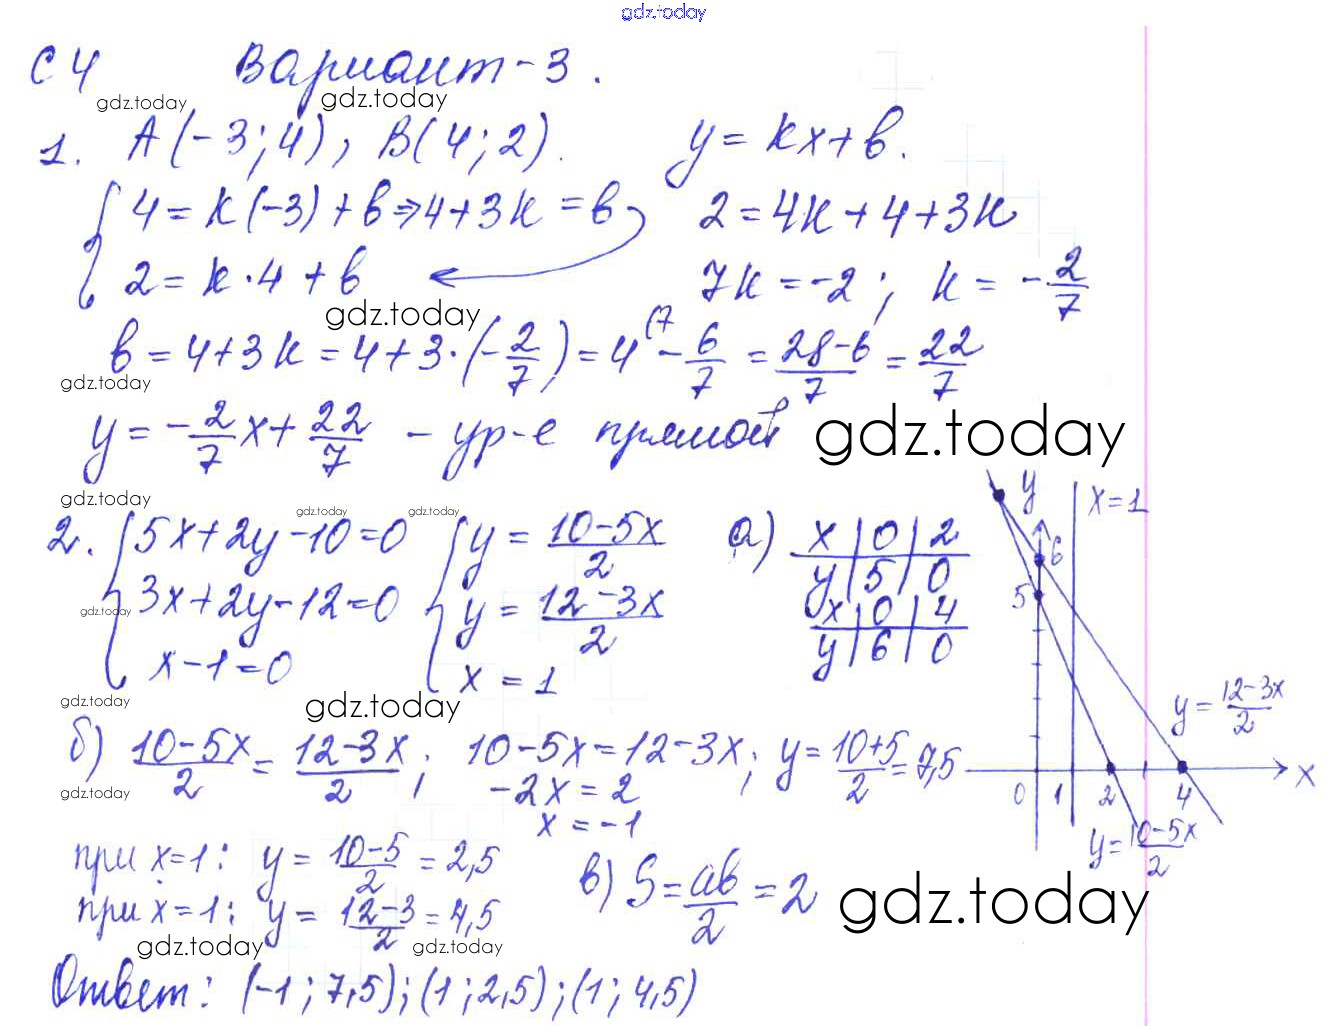 gdz.today
С 4 Вариант-3.
gdz.today gdz.today
1. А(-3;4), В(4;2). y = kx+в.
4 = k(-3)+в ⇒ 4+3k = в 2 = 4k+4+3k
2 = k·4+в 7k = -2; k = -2/7
gdz.today
в = 4+3k = 4+3·(-2/7) = 4(7 - 6/7 = 28-6/7 = 22/7
gdz.today
y = -2/7 x + 22/7 - ур-е прямой gdz.today
gdz.today gdz.today gdz.today
2. 5x+2y-10=0 y = 10-5x/2 а) x|0|2
y|5|0
3x+2y-12=0 y = 12-3x/2 x|0|4
y|6|0
gdz.today
x-1=0 x = 1
y x=1
6
5
y = 12-3x/2
0 1 2 4 x
y = 10-5x/2
gdz.today gdz.today
б) 10-5x/2 = 12-3x/2; 10-5x=12-3x; y = 10+5/2 = 7,5
-2x = 2
gdz.today
x = -1
при x=1: y = 10-5/2 = 2,5 в) S = ab/2 = 2 gdz.today
при x=1: y = 12-3/2 = 4,5
gdz.today gdz.today
Ответ: (-1; 7,5); (1; 2,5); (1; 4,5)